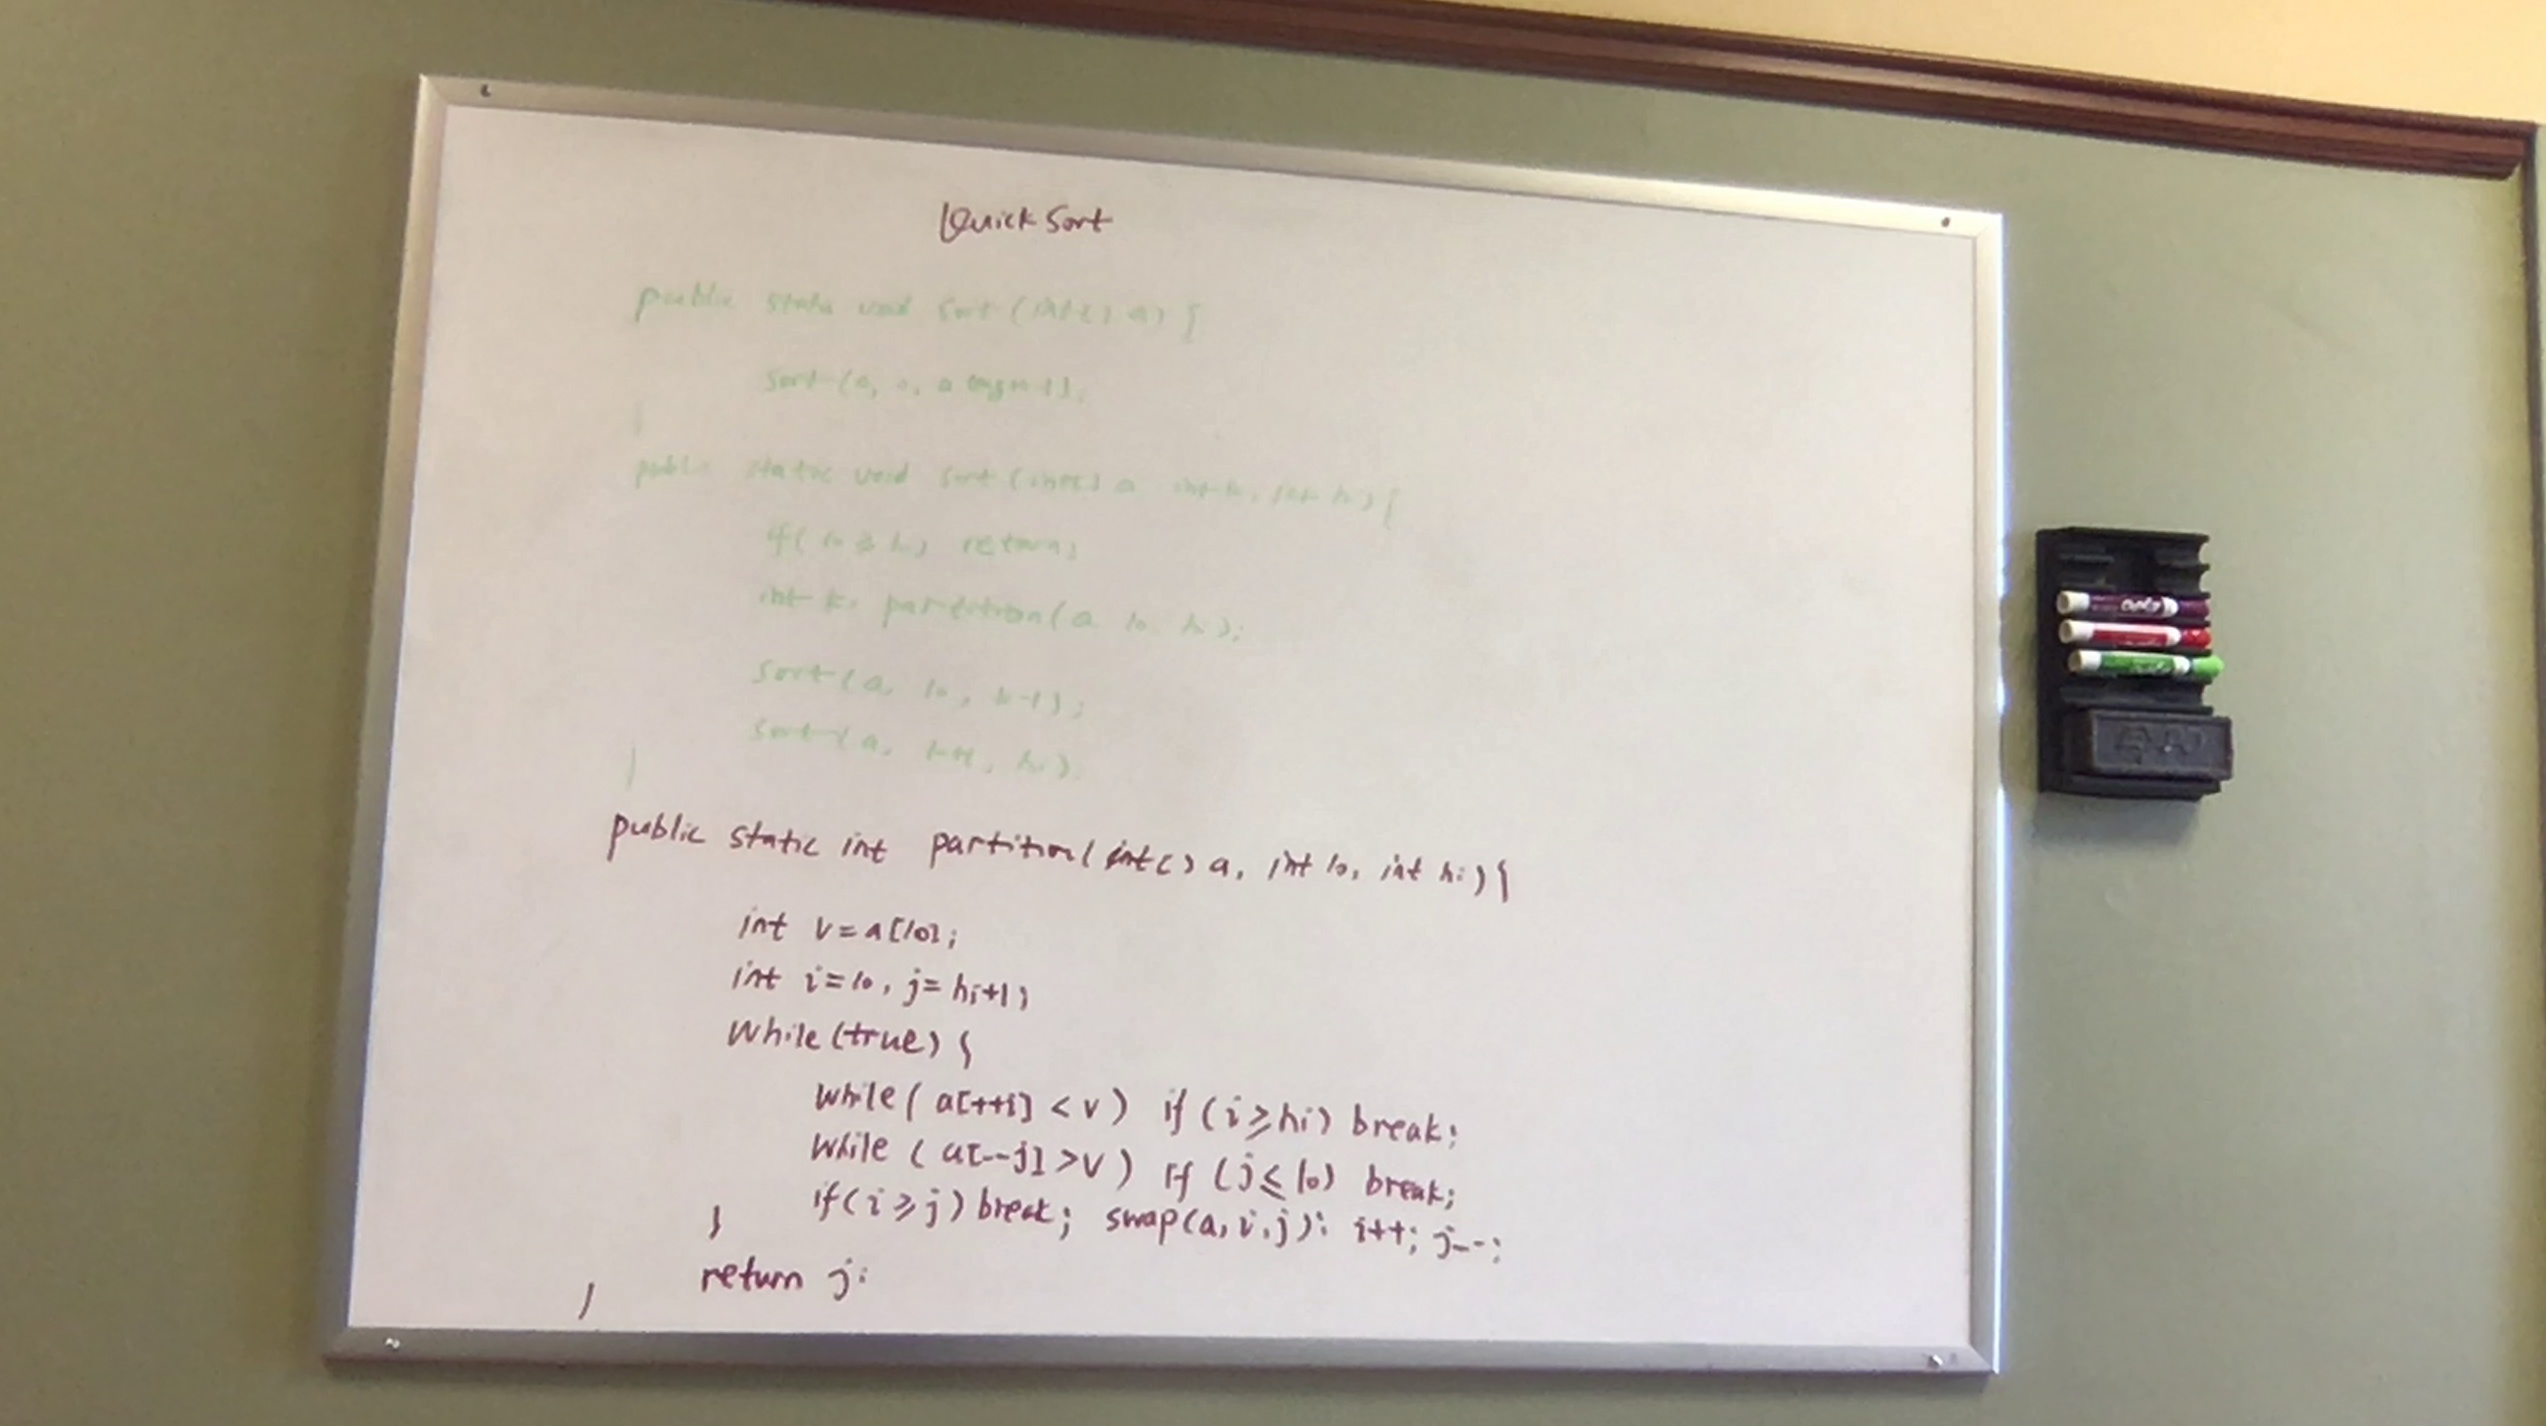 Quick Sort
public static void sort (int[] a) {
sort (a, 0, a length-1);
}
public static void sort (int[] a int lo, int hi) {
if ( lo ≥ hi) return;
int k = partition (a lo hi);
sort (a, lo, k-1);
sort (a, k+1, hi);
}
public static int partition (int[] a, int lo, int hi) {
int v = a[lo];
int i = lo, j = hi+1;
while (true) {
while ( a[++i] < v ) if ( i ≥ hi) break;
while ( a[--j] > v ) if ( j ≤ lo) break;
if ( i ≥ j ) break; swap(a, i, j); i++; j--;
}
return j;
}
Expo